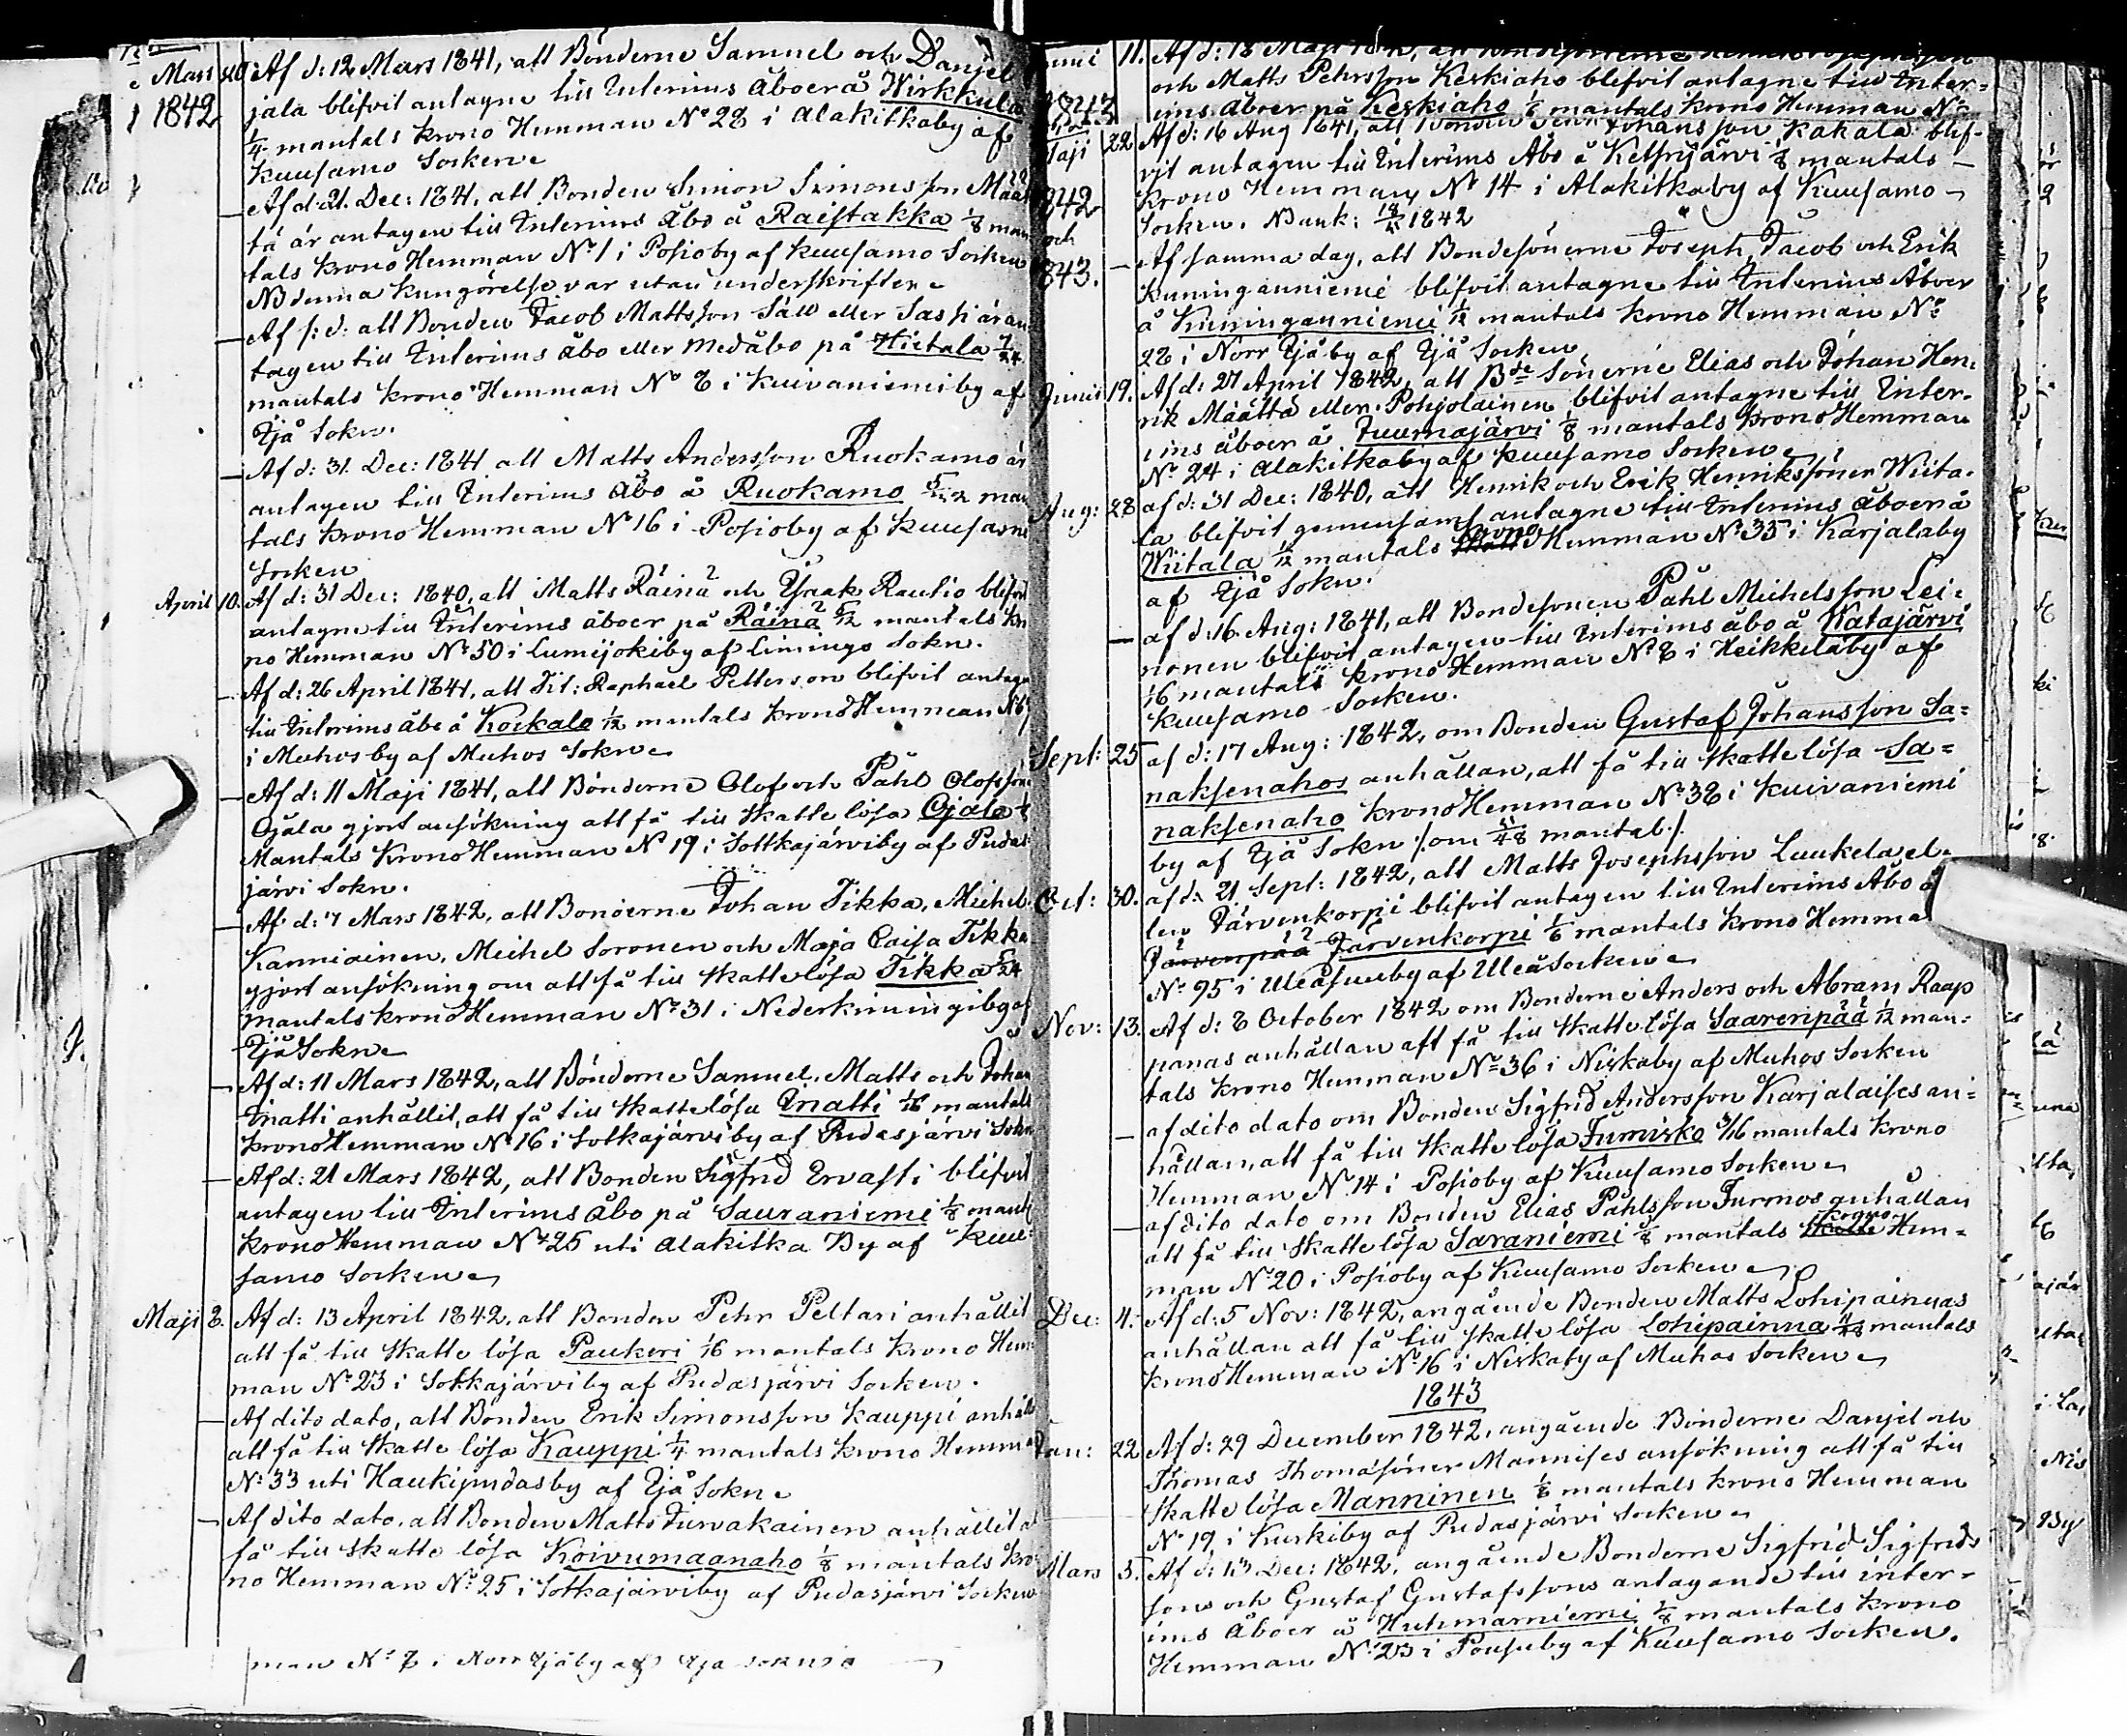 Mars 20. Af d: 12 Mars 1841, att Bönderne Samuel och Danjel
1842 jala blifvit antagne till Interims Åboer å Wirkkula
1/4 mantals krono Hemman No 28 i Alakitkaby af
Kuusamo Socken
— Af d: 21. Dec: 1841, att Bonden Simon Simonsson Määt
tä är antagen till Interims Åbo å Raistakka 1/8 man
tals krono Hemman No 1 i Posioby af Kuusamo Socken
NB denna kungörelse var utan underskrifter
— Af s: d: att Bonden Jacob Mattsson Säll eller Saspi är an
tagen till Interims åbo eller medåbo på Hietala 7/24
mantals krono Hemman No 8 i Kuivaniemiby af
Ijå Sokn.
— Af d: 31. Dec: 1841 att Matts Andersson Ruokamo är
antagen till Interims Åbo å Ruokamo man
tals krono Hemman No 16 i Posioby af Kuusamo
Socken
April 10. Af d: 31 Dec: 1840, att Matts Räinä och Isaak Rautio blifvit
antagne till Interims åboer på Räinä 5/12 mantals kro
no Hemman No 50 i Lumijokiby af Limingo Sokn.
— Af d: 26 April 1841, att Tit: Raphael Petterson blifvit antage
till Interims åbo å Kockalo 1/12 mantals krono Hemman No
i Muhos by af Muhos Sokn
— Af d: 11 Maji 1841, att Bönderne Olof och Påhl Olofssön
Ojala gjort ansökning att få till skatte lösa Ojala
Mantals Krono Hemman No 19 i Sottkajärviby af Pudas
järvi Sokn.
— Af d: 7 Mars 1842, att Bönderne Johan Tikka, Michel
Kanniainen, Michel Soronen och Maja Caisa Tikka
gjort ansökning om att få till skatte lösa Tikka 5/24
mantals krono Hemman No 31 i Nederkiimingiby af
Ijå Sokn
— Af d: 11 Mars 1842, att Bönderne Samuel, Matts och Johan
Inatti anhållit, att få till skatte lösa Inatti 1/16 mantals
krono Hemman No 16 i Sotkajärviby af Pudasjärvi Sokn
— Af d: 21 Mars 1842, att Bonden Sigfrid Ervasti blifvit
antagen till Interims Åbo på Sauraniemi 1/8 mant
krono Hemman No 25 uti Alakitka By af Kuu
samo Socken
Maji 8. Af d: 13 April 1842, att Bonden Pehr Peltari anhållit
att få till skatte lösa Paukeri 1/6 mantals krono Hem
man No 23 i Sotkajärviby af Pudasjärvi Socken.
— Af dito dato, att Bonden Erik Simonsson Kauppi anhåll
att få till skatte lösa Kauppi 1/4 mantals krono Hemman
No 33 uti Haukipudasby af Ijå Sokn
— Af dito dato, att Bonden Matts Turvakainen anhållit a
få till skatte lösa Koivumaanaho 1/8 mantals kro
no Hemman No 25 i Sotkajärviby af Pudasjärvi Socken
man No 8 i Norr Ijåby af Ijå
11. Af d: 18 Maji
och Matts Pehrsson Keskiaho blifvit antagne till Inter=
ims åboer på Keskiaho mantals krono Hemman No
Maji 22 Af d: 16 Aug 1841, att Bonden Johansson Kakala blif-
vit antagen till Interims Åbo å 1/8 mantals
1842 Krono Hemman No 14 i Alakitkaby af Kuusamo
Socken. NB ank: 1842
och — Af samma dag, att Bondesönerne Joseph, Jacob och Erik
1843. Kuninganniemi blifvit antagne till Interims Åboer
å Kuninganniemi 1/12 mantals krono Hemman No
28 i Norr Ijåby af Ijå Socken
Junii 19. Af d: 27 April 1842, att Bde Sönerne Elias och Johan Hen-
rik Määttä eller Pohjolainen blifvit antagne till Inter-
ims åboer å Juumajärvi 1/8 mantals krono Hemman
No 24 i Alakitkaby af Kuusamo Socken
Aug: 28 af d: 31 Dec: 1840, att Henrik och Erik Henrikssöner Wiita-
la blifvit gemensamt antagne till Interims Åboer å
Wiitala 1/12 mantals krono Hemman No 35 i Karjalaby
af Ijå Sokn.
— af d: 16 Aug: 1841, att Bondesonen Påhl Michelsson Lei-
nonen blifvit antagen till Interims åbo å Katajärvi
1/6 mantals krono Hemman No 8 i Heikkeläby af
Kuusamo Socken.
Sept: 25 af d: 17 Aug: 1842, om Bonden Gustaf Johansson Sa=
naksenahos anhållan, att få till skatte lösa Sa=
naksenaho krono Hemman No 38 i Kuivaniemi
by af Ijå Sokn /: om 11/48 mantal :/.
Oct: 30. af d: 21 Sept: 1842, att Matts Josephsson Luukela el-
ler Järvenkorpi blifvit antagen till Interims Åbo å
Järvenpää Järvenkorpi 1/6 mantals krono Hemma
No 95 i Uleåsuuby af Uleå Socken
Nov: 13. Af d: 8 October 1842 om Bonderne Anders och Abram Raap
panas anhållan att få till skatte lösa Saarenpää 1/12 man-
tals krono Hemman No 36 i Niskaby af Muhos Socken
— af dito dato om Bonden Sigfrid Andersson Karjalaises an-
hållan, att få till skatte lösa Jumisko 3/16 mantals krono
Hemman No 14 i Posioby af Kuusamo Socken
— af dito dato om Bonden Elias Påhlsson Jurmos anhållan
att få till skatte lösa Saraniemi 1/8 mantals skatte krono Hem-
man No 20 i Posioby af Kuusamo Socken
Dec: 4. Af d: 5 Nov: 1842, angående Bonden Matts Lohipainnas
anhållan att få till skatte lösa Lohipainna mantals
krono Hemman No 16 i Niskaby af Muhos Socken
1843
Jan: 22 Af d: 29 December 1842, angående Bönderne Danjel och
Thomas Thomasöner Mannises ansökning att få till
skatte lösa Manninen 1/6 mantals krono Hemman
No 19 i Kurkiby af Pudasjärvi Socken
Mars 5. Af d: 13 Dec: 1842, angående Bonderne Sigfrid Sigfrids
son och Gustaf Gustafssons antagande till inter-
ims Åboer å Huhmarniemi 1/8 mantals krono
Hemman No 23 i Pousuby af Kuusamo Socken.